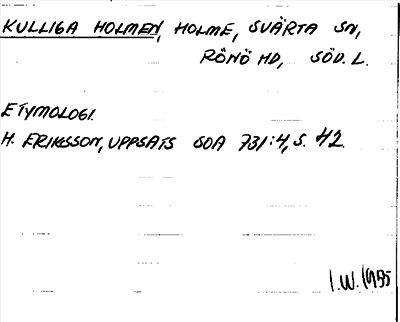 KULLIGA HOLMEN, HOLME, SVÄRTA SN,
RÖNÖ HD, SÖD. L.
ETYMOLOGI.
H. ERIKSSON, UPPSATS SOA 731:4, S. 42.
I.W. 1955